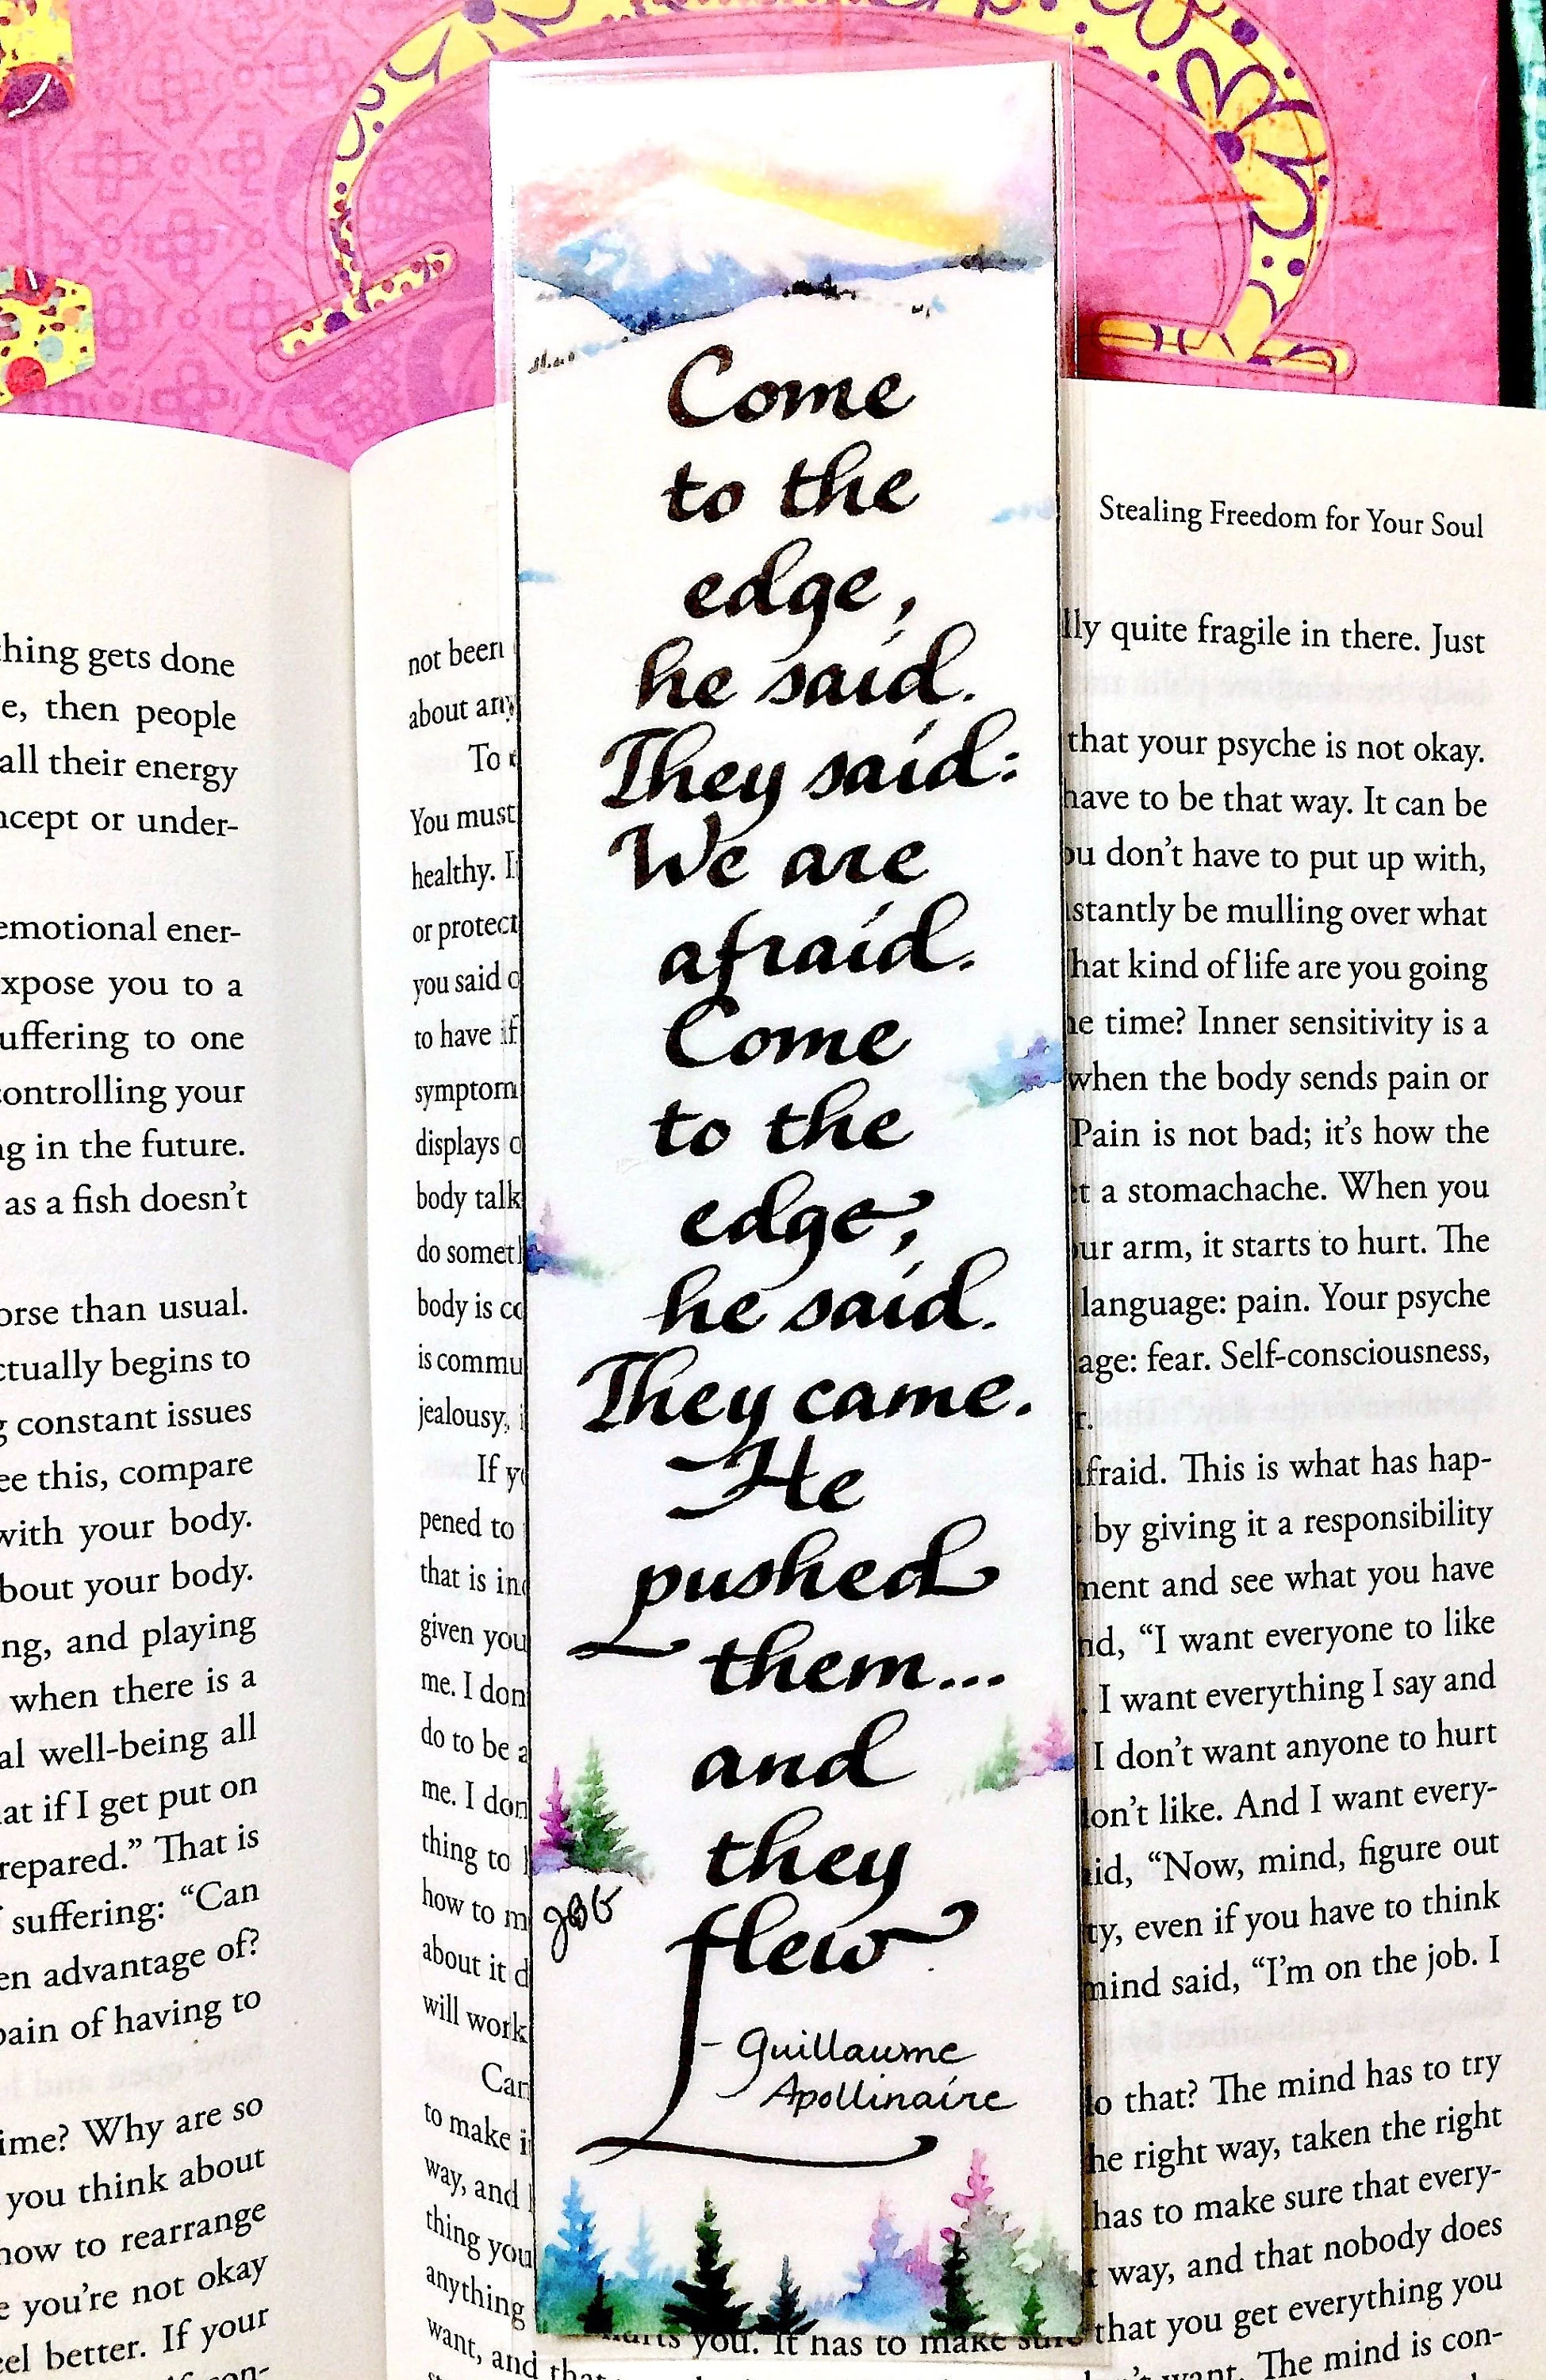 Come
to the
edge,
he said.
They said:
We are
afraid.
Come
to the
edge,
he said.
They came.
He
pushed
them...
and
they
flew
- Guillaume
Apollinaire
thing gets done
e, then people
all their energy
ncept or under-
emotional ener-
xpose you to a
uffering to one
controlling your
ng in the future.
as a fish doesn't
orse than usual.
ctually begins to
g constant issues
ee this, compare
with your body.
bout your body.
ng, and playing
when there is a
al well-being all
at if I get put on
repared." That is
suffering: "Can
en advantage of?
pain of having to
ime? Why are so
you think about
how to rearrange
e you're not okay
el better. If your
con-
Stealing Freedom for Your Soul
not been lly quite fragile in there. Just
about any
To that your psyche is not okay.
You must have to be that way. It can be
healthy. I ou don't have to put up with,
or protect stantly be mulling over what
you said o hat kind of life are you going
to have if e time? Inner sensitivity is a
symptom when the body sends pain or
displays o Pain is not bad; it's how the
body talk t a stomachache. When you
do somet ur arm, it starts to hurt. The
body is co language: pain. Your psyche
is commu age: fear. Self-consciousness,
jealousy, r.
If y fraid. This is what has hap-
pened to by giving it a responsibility
that is in ment and see what you have
given you nd, "I want everyone to like
me. I don I want everything I say and
do to be a I don't want anyone to hurt
me. I don on't like. And I want every-
thing to id, "Now, mind, figure out
how to m ty, even if you have to think
about it d mind said, "I'm on the job. I
will work
Can o that? The mind has to try
to make i he right way, taken the right
way, and has to make sure that every-
thing you way, and that nobody does
anything hurts you. It has to make sure that you get everything you
want, and that want. The mind is con-